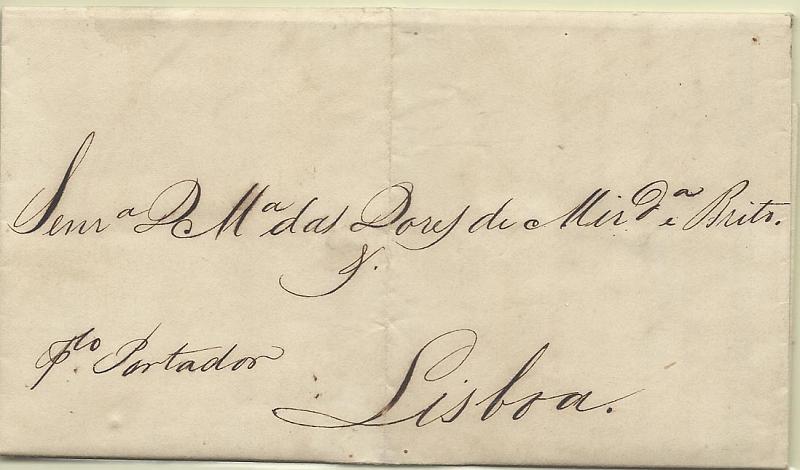 Senr.ª D. M.ª das Dores de Mir.dª e Brito.
p.lo Portador
Lisboa.